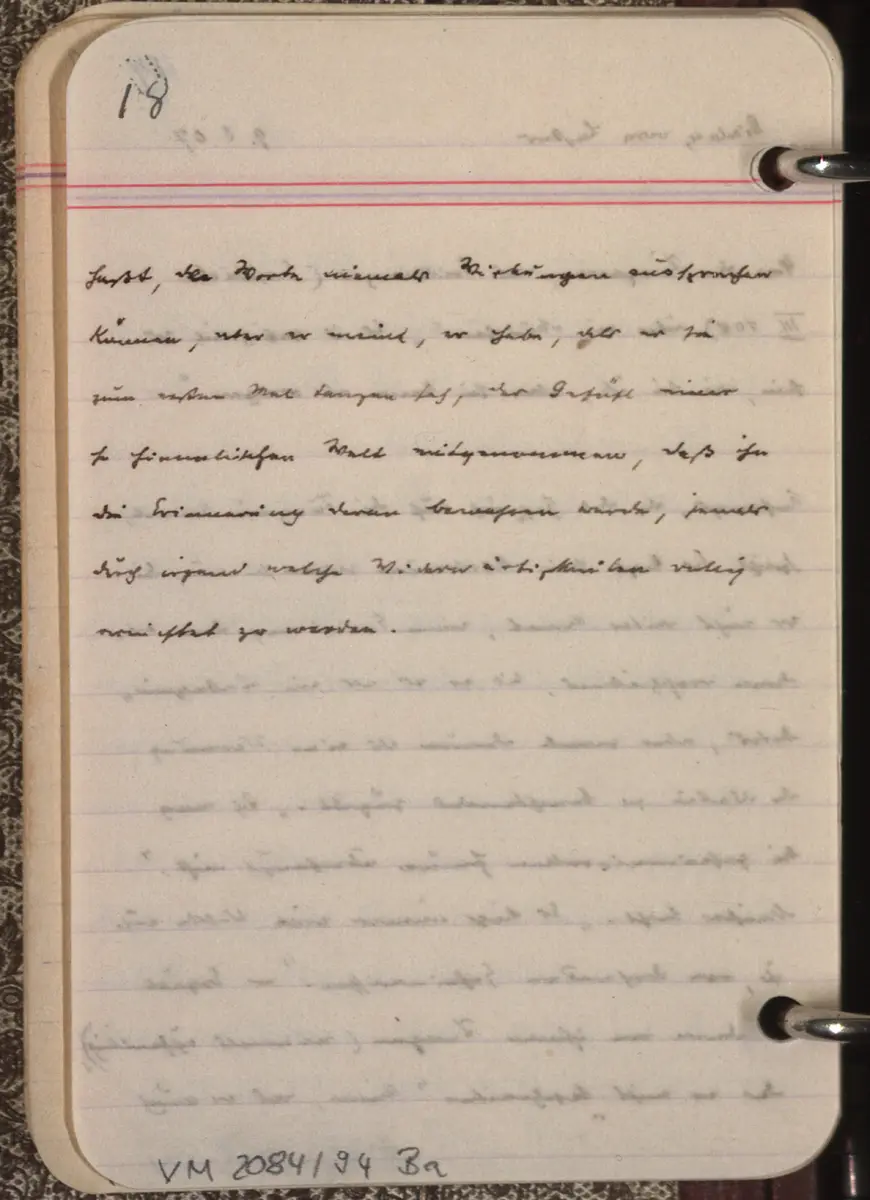 18
haßt, da Worte niemals Wirkungen aussprechen
können, aber er meint, er habe, als er sie
zum ersten Mal tanzen sah, das Gefühl einer
so himmlischen Welt mitgenommen, daß ihn
die Erinnerung daran bewahren werde, jemals
durch irgend welche Widerwärtigkeiten völlig
vernichtet zu werden.
VM 2084/94 Ba